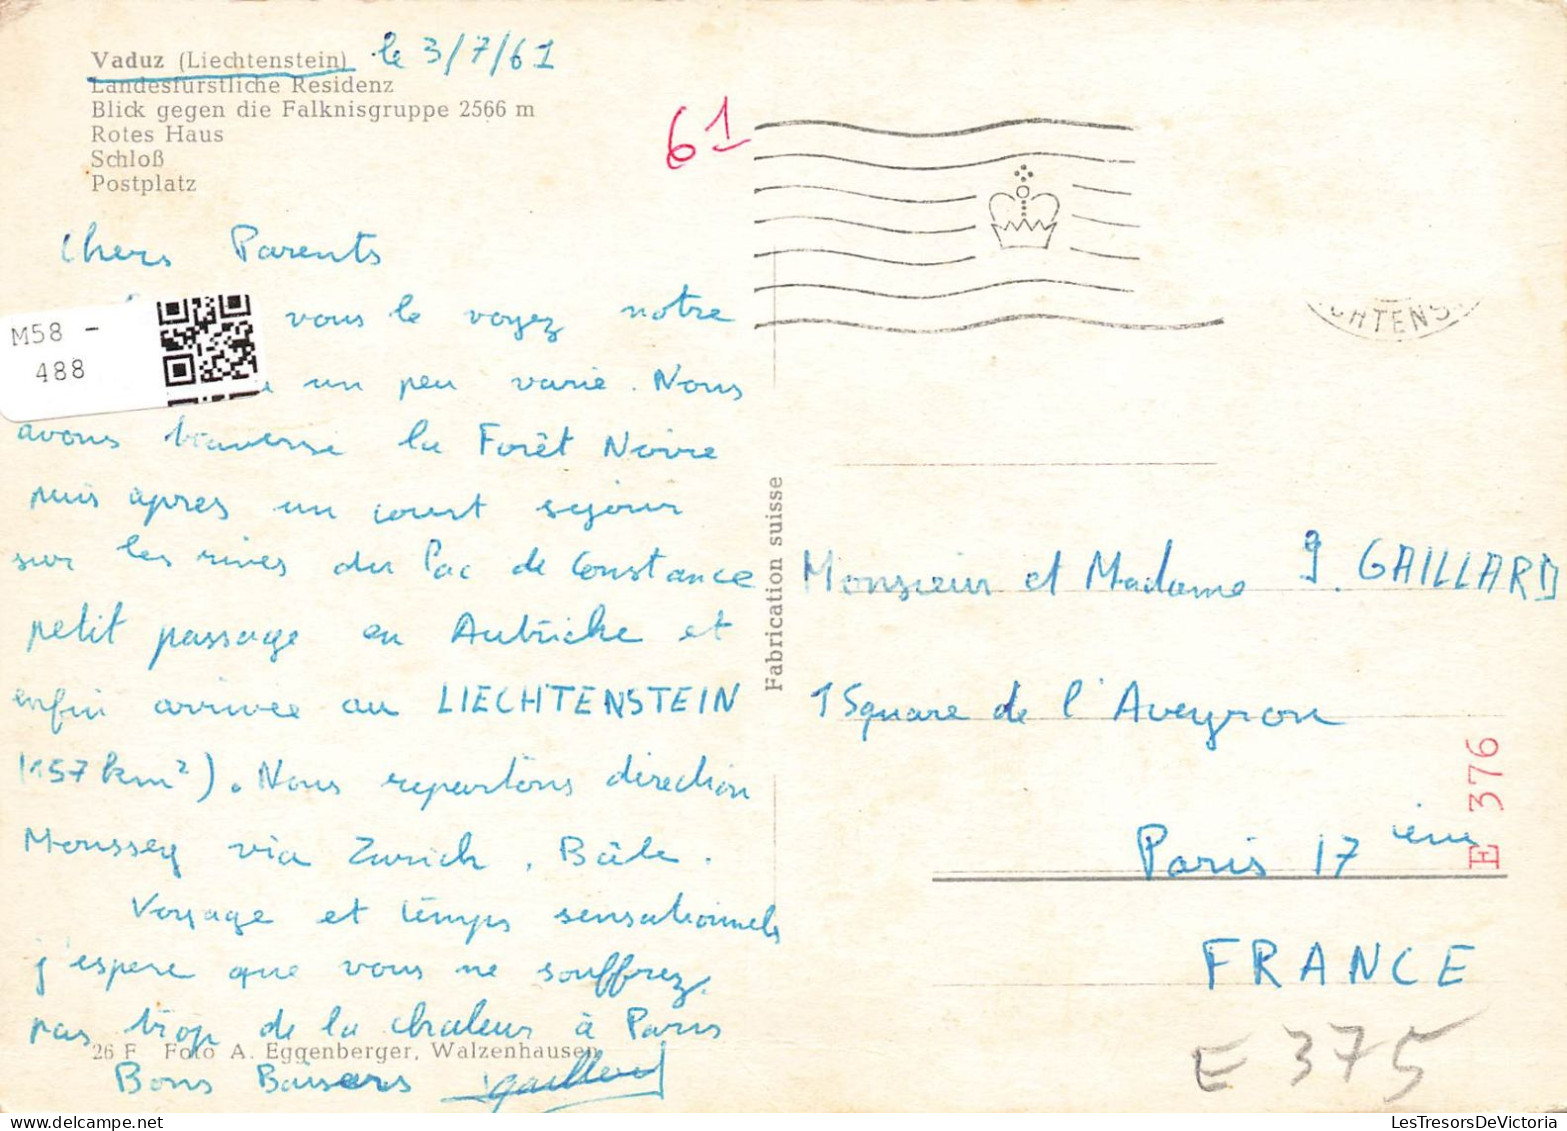 Vaduz (Liechtenstein) le 3/7/61
Landesfürstliche Residenz
Blick gegen die Falknisgruppe 2566 m
Rotes Haus
Schloß
Postplatz
61
Chers Parents
vous le voyez notre
un peu varié. Nous
avons traversé la Forêt Noire
puis après un court séjour
sur les rives du Lac de Constance
petit passage en Autriche et
enfin arrivée au LIECHTENSTEIN
(157 km²). Nous repartons direction
Moussey via Zurich, Bâle.
Voyage et temps sensationnels
j'espère que vous ne souffrez
pas trop de la chaleur à Paris
Bons Baisers Jgaillard
26 F Foto A. Eggenberger, Walzenhausen
M58 -
488
Fabrication suisse
CHTENS
Monsieur et Madame J. GAILLARD
1 Square de l'Aveyron
Paris 17 ième
FRANCE
E 376
E 375
LesTresorsDeVictoria